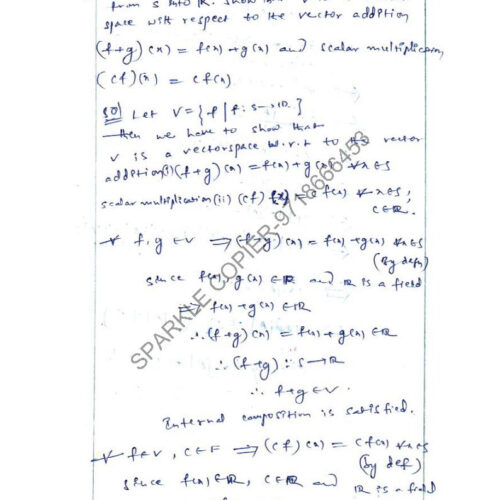 from S into R. Show that V
space with respect to the vector addition
(f+g)(x) = f(x)+g(x) and scalar multiplication,
(cf)(x) = cf(x)
Sol Let V = {f | f: S→R}
then we have to show that
V is a vectorspace w.r.t to the vector
addition(i)(f+g)(x) = f(x)+g(x) ∀x∈S
scalar multiplication(ii) (cf)(x) = c f(x) ∀x∈S,
c∈R.
∀ f,g ∈V ⇒(f+g)(x) = f(x)+g(x) ∀x∈S
(By defn)
since f(x), g(x) ∈R and R is a field
⇒ f(x)+g(x) ∈R
∴(f+g)(x) = f(x)+g(x) ∈R
∴ (f+g): S→R
∴ f+g∈V.
Internal composition is satisfied.
∀ f∈V, c∈F ⇒(cf)(x) = cf(x) ∀x∈S
(By def)
since f(x)∈R, c∈R and R is a field
SPARKLE COPIER-9718666453